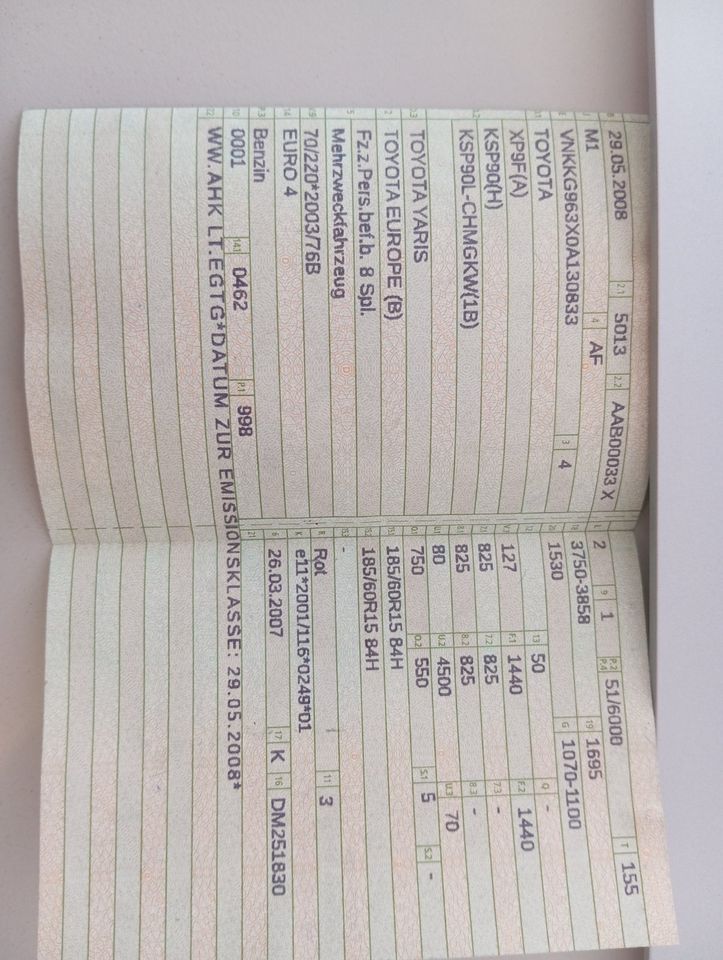 B 29.05.2008 2.1 5013 2.2 AAB00033 X
J M1 4 AF
E VNKKG963X0A130833 3 4
D.1 TOYOTA
XP9F(A)
D.2 KSP90(H)
KSP90L-CHMGKW(1B)
D.3 TOYOTA YARIS
2 TOYOTA EUROPE (B)
5 Fz.z.Pers.bef.b. 8 Spl.
Mehrzweckfahrzeug
V.9 70/220*2003/76B
14 EURO 4
P.3 Benzin
10 0001 14.1 0462 P.1 998
22 WW.AHK LT.EGTG*DATUM ZUR EMISSIONSKLASSE: 29.05.2008*
L 2 9 1 P.2 P.4 51/6000 T 155
18 3750-3858 19 1695
20 1530 G 1070-1100
12 13 50 Q -
V.7 127 F.1 1440 F.2 1440
7.1 825 7.2 825 7.3 -
8.1 825 8.2 825 8.3 -
U.1 80 U.2 4500 U.3 70
O.1 750 O.2 550 S.1 5 S.2 -
15.1 185/60R15 84H
15.2 185/60R15 84H
15.3 -
R Rot 11 3
K e11*2001/116*0249*01
6 26.03.2007 17 K 16 DM251830
21